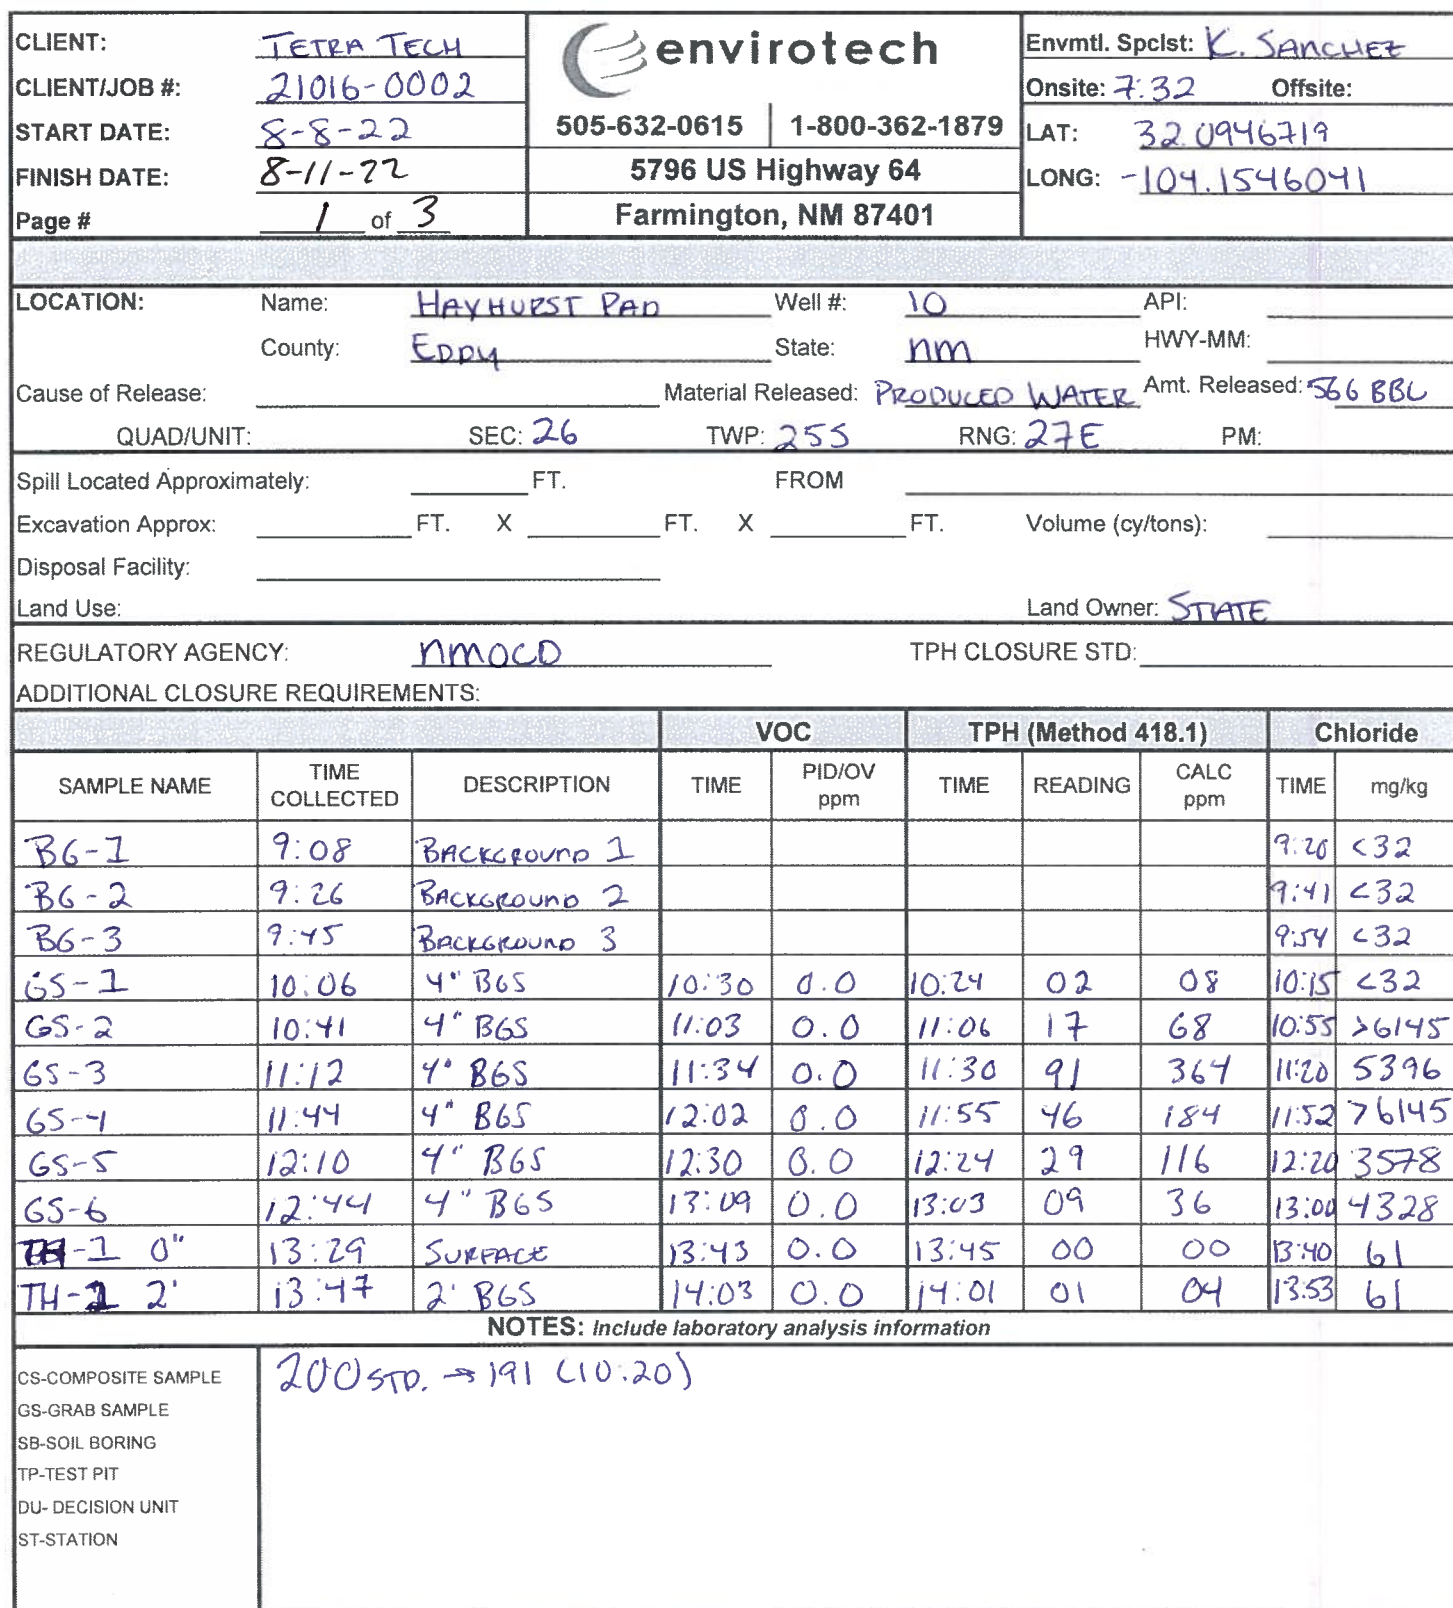 CLIENT: TETRA TECH
CLIENT/JOB #: 21016-0002
START DATE: 8-8-22
FINISH DATE: 8-11-22
Page # 1 of 3
envirotech
505-632-0615 1-800-362-1879
5796 US Highway 64
Farmington, NM 87401
Envmtl. Spclst: K. SANCHEZ
Onsite: 7:32 Offsite:
LAT: 32.0946719
LONG: -104.1546041
LOCATION: Name: HAYHURST PAD Well #: 10 API:
County: EDDY State: NM HWY-MM:
Cause of Release: Material Released: PRODUCED WATER Amt. Released: 566 BBL
QUAD/UNIT: SEC: 26 TWP: 25S RNG: 27E PM:
Spill Located Approximately: FT. FROM
Excavation Approx: FT. X FT. X FT. Volume (cy/tons):
Disposal Facility:
Land Use: Land Owner: STATE
REGULATORY AGENCY: NMOCD TPH CLOSURE STD:
ADDITIONAL CLOSURE REQUIREMENTS:
VOC TPH (Method 418.1) Chloride
SAMPLE NAME TIME COLLECTED DESCRIPTION TIME PID/OV ppm TIME READING CALC ppm TIME mg/kg
BG-1 9:08 BACKGROUND 1 9:20 <32
BG-2 9:26 BACKGROUND 2 9:41 <32
BG-3 9:45 BACKGROUND 3 9:54 <32
GS-1 10:06 4" BGS 10:30 0.0 10:24 02 08 10:15 <32
GS-2 10:41 4" BGS 11:03 0.0 11:06 17 68 10:55 >6145
GS-3 11:12 4" BGS 11:34 0.0 11:30 91 364 11:20 5396
GS-4 11:44 4" BGS 12:02 0.0 11:55 46 184 11:52 >6145
GS-5 12:10 4" BGS 12:30 0.0 12:24 29 116 12:20 3578
GS-6 12:44 4" BGS 13:09 0.0 13:03 09 36 13:00 4328
TH-1 0" 13:29 SURFACE 13:43 0.0 13:45 00 00 13:40 61
TH-1 2' 13:47 2' BGS 14:03 0.0 14:01 01 04 13:53 61
NOTES: Include laboratory analysis information
200 STD. → 191 (10:20)
CS-COMPOSITE SAMPLE
GS-GRAB SAMPLE
SB-SOIL BORING
TP-TEST PIT
DU- DECISION UNIT
ST-STATION